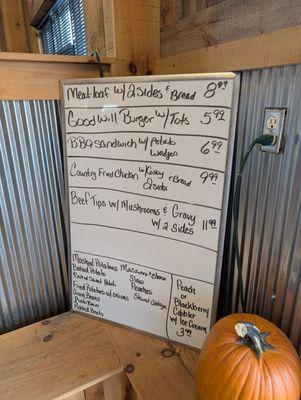 Meatloaf w/ 2 Sides & Bread 8.99
Good Will Burger w/ Tots 5.99
BBQ Sandwich w/ Potato
Wedges 6.99
Country Fried Chicken w/ Gravy & Bread 9.99
2 Sides
Beef Tips w/ Mushrooms & Gravy
w/ 2 Sides 11.99
Mashed Potatoes
Baked Potato
Baked Sweet Potato
Fried Potatoes w/ Onions
Green Beans
Pinto Beans
Pickled Beets
Macaroni & Cheese
Slaw
Peaches
Cottage
Peach
or
Blackberry
Cobbler
w/ Ice Cream
3.99